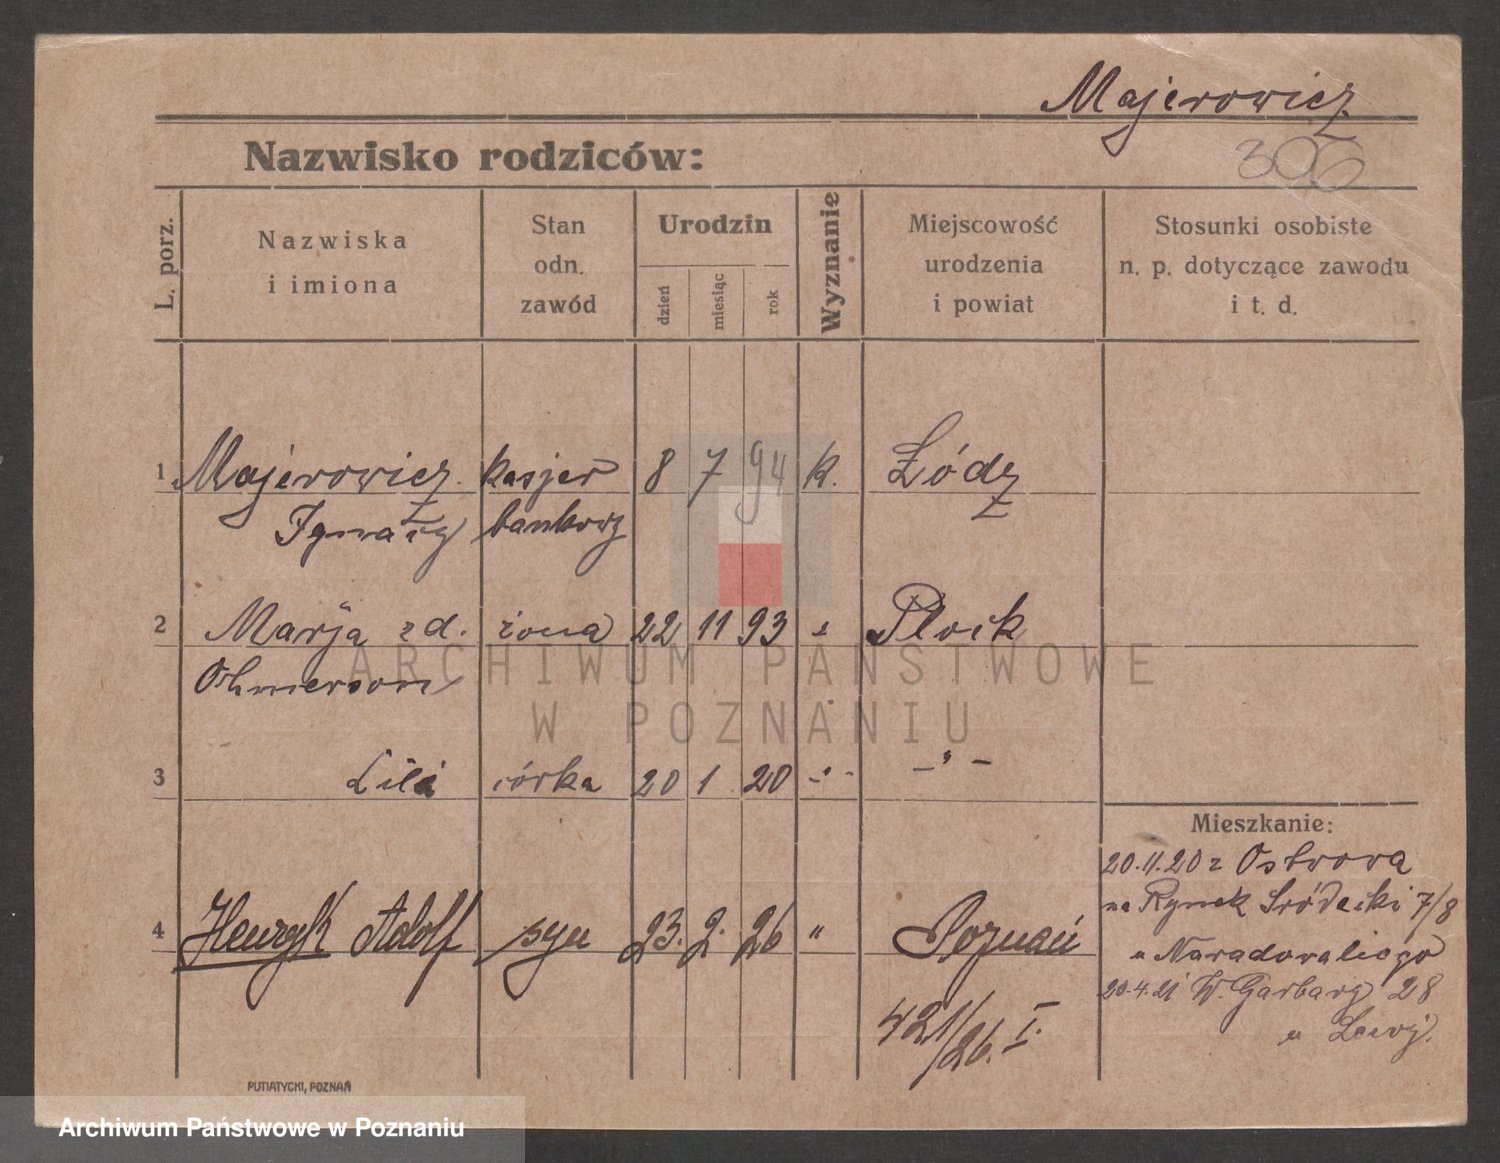 Majerowicz
Nazwisko rodziców:
306
L. porz.
Nazwiska
i imiona
Stan
odn.
zawód
Urodzin
dzień
miesiąc
rok
Wyznanie
Miejscowość
urodzenia
i powiat
Stosunki osobiste
n. p. dotyczące zawodu
i t. d.
1 Majerowicz kasjer 8 7 94 k. Łódz
Ignacy bankowy
2 Marja zd. żona 22 11 93 " Płock
Ohmerson
ARCHIWUM PAŃSTWOWE
W POZNANIU
3 Lili córka 20 1 20 -"- -"-
Mieszkanie:
20.11.20 z Ostrowa
na Rynek Śródecki 7/8
u Naradovaliego
20.4.21 W. Garbary 28
u Lewj.
4 Henryk Adolf syn 23. 2. 26 " Poznań
421/26. I.
PUTIATYCKI, POZNAŃ
Archiwum Państwowe w Poznaniu